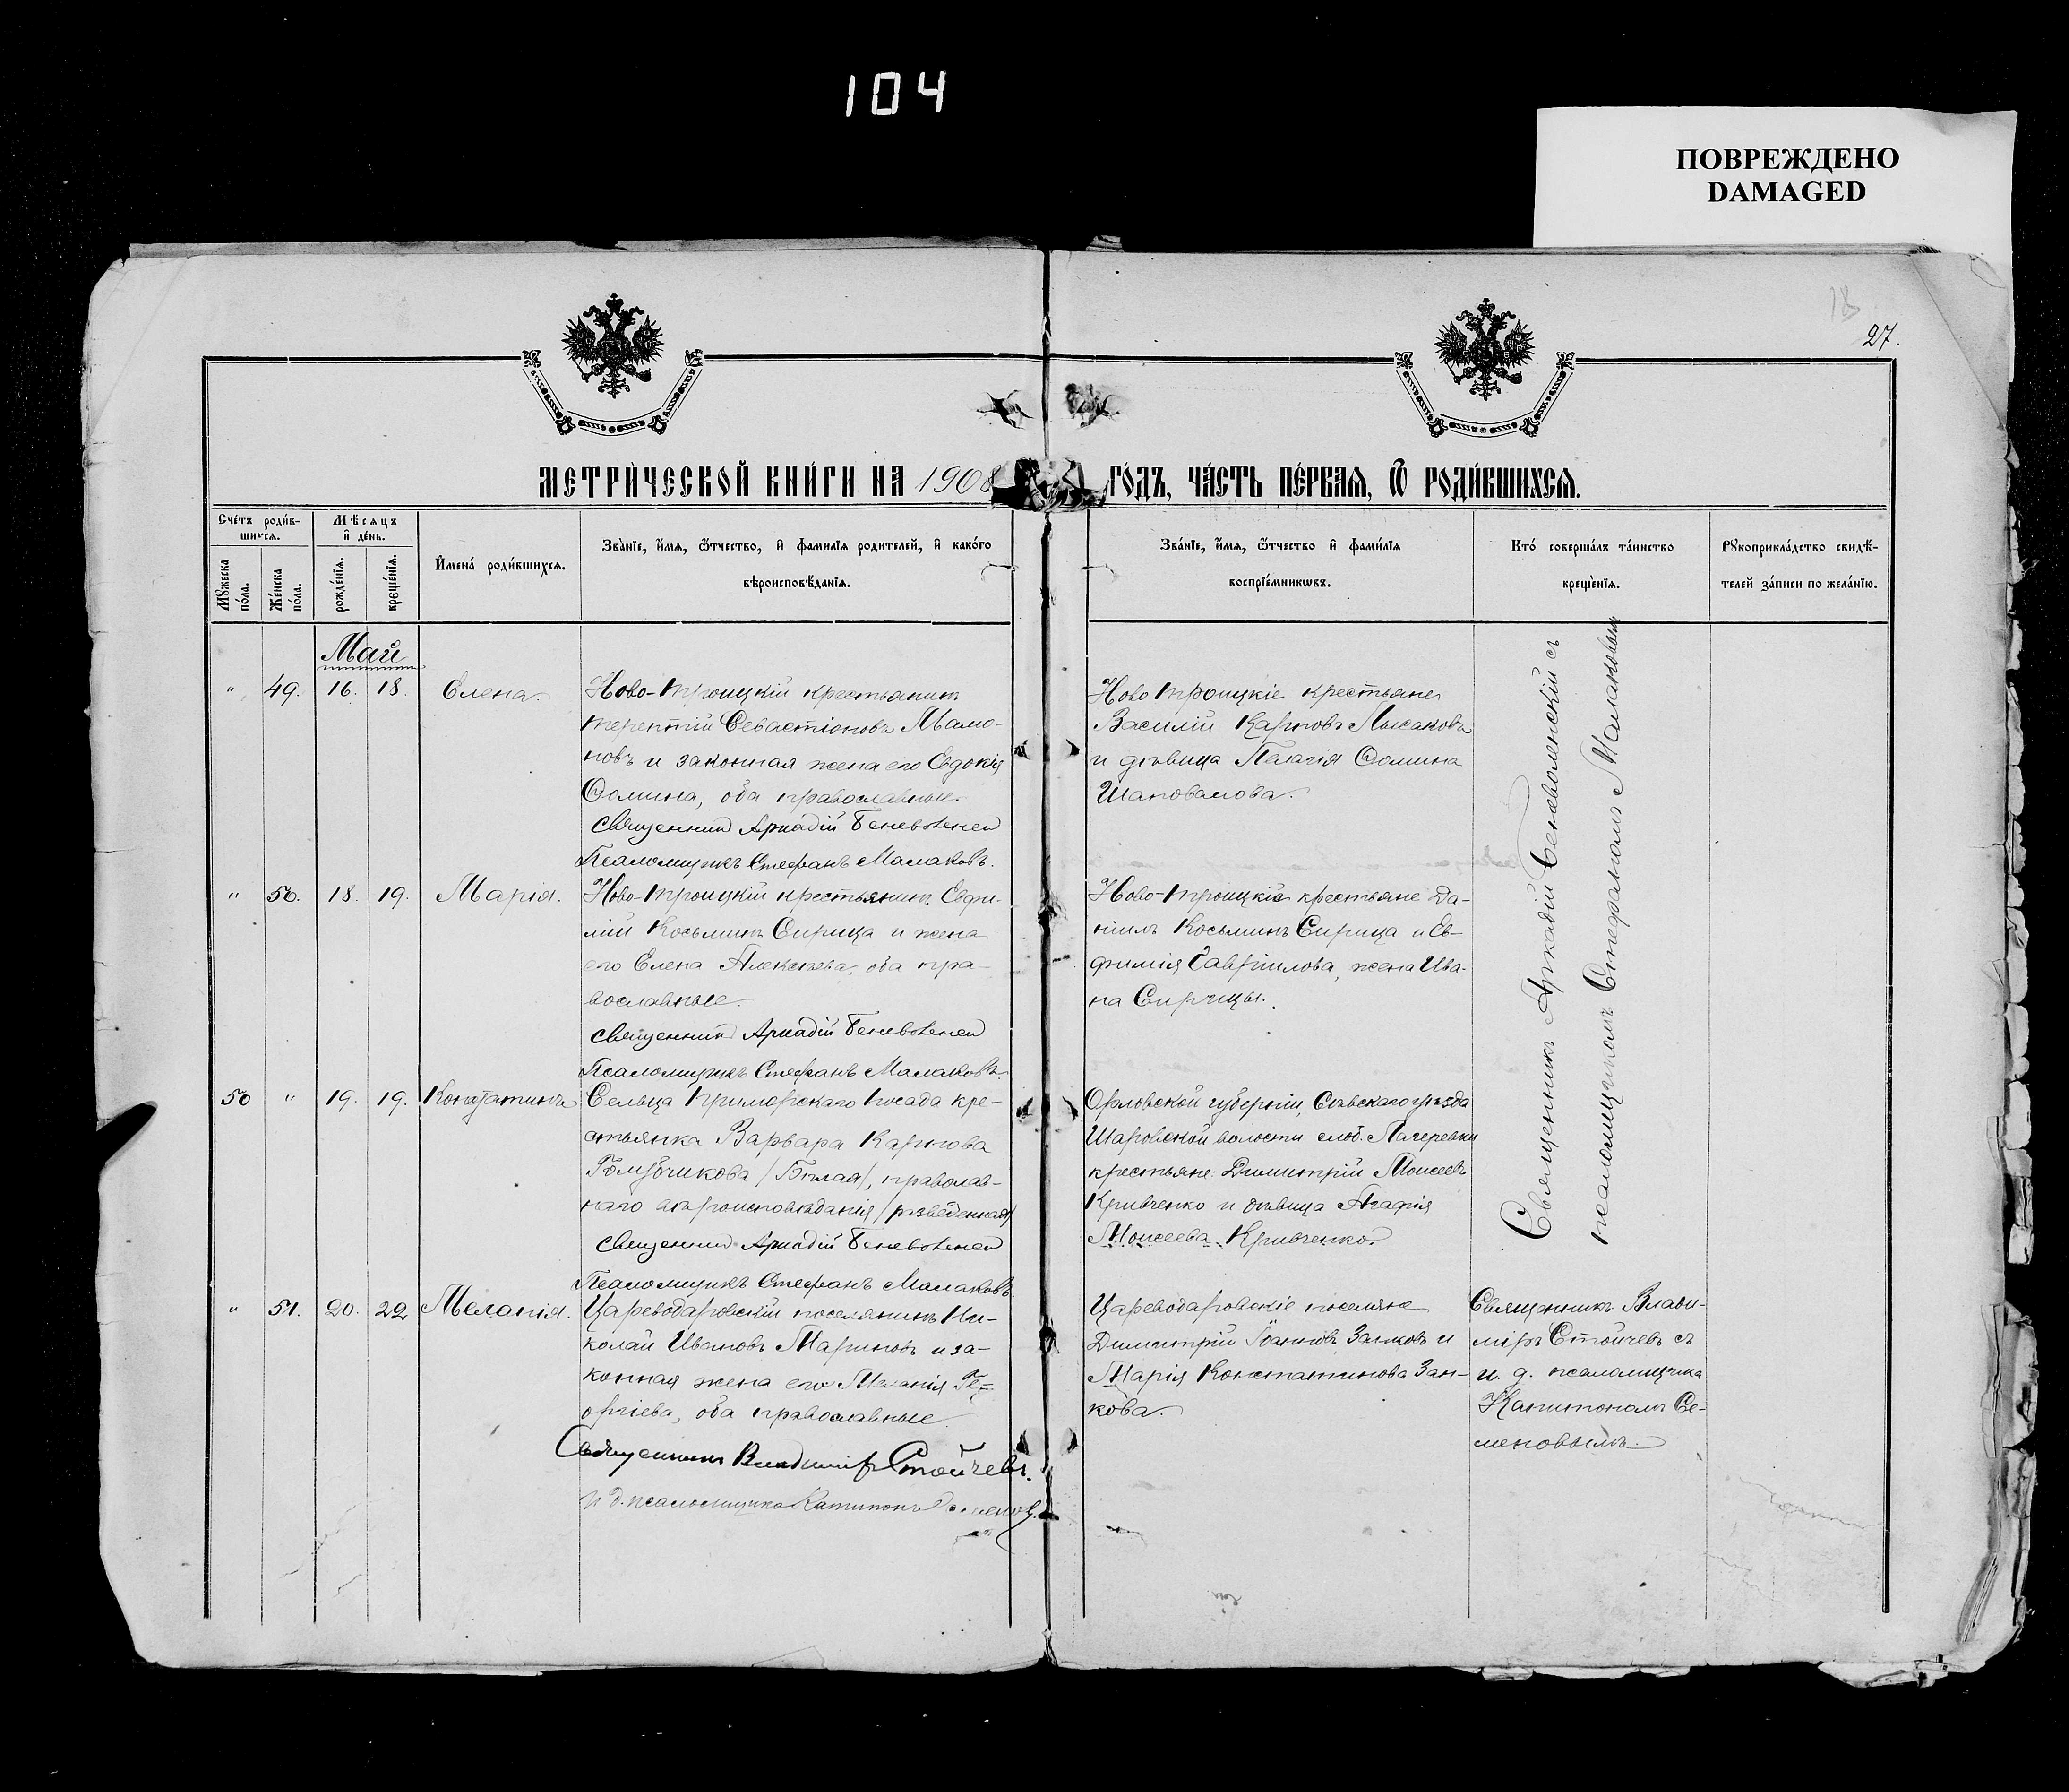 104
ПОВРЕЖДЕНО
DAMAGED
27.
МЕТРИ́ЧЕСКОЙ КНИ́ГИ НА 1908
ГО́ДЪ, ЧА́СТЬ ПЕ́РВАѦ, Ѿ РОДИ́ВШИХСѦ.
Сче́тъ роди́в-
шихсѧ.
Мѣ́сѧцъ
и҆ де́нь.
Мꙋ́жеска по́ла.
Же́нска по́ла.
рожде́нїѧ.
креще́нїѧ.
И҆мена̀ роди́вшихсѧ.
Зва́нїе, и҆́мѧ, ѻ҆́тчество, и҆ фами́лїѧ роди́телей, и҆ како́го
вѣроисповѣ́данїѧ.
Зва́нїе, и҆́мѧ, ѻ҆́тчество и҆ фами́лїѧ
воспрїе́мникѡвъ.
Кто̀ соверша́лъ та́инство
креще́нїѧ.
Рꙋкоприкла́дство свидѣ́-
телей за́писи по жела́нїю.
Май
" 49. 16. 18. Елена.
Ново-Троицкій крестьянинъ
Терентій Севастіановъ Мамо-
новъ и законная жена его Евдокія
Ѳомина, оба православные.
Священник Аркадій Беневоленск
Псаломщикъ Стефанъ Малаковъ.
Ново Троицкіе крестьяне
Василій Карповъ Лысаковъ
и дѣвица Пелагія Ѳомина
Шаповалова.
" 50. 18. 19. Марія.
Ново-Троицкій крестьянинъ Евфи-
мій Косьминъ Сирица и жена
его Елена Алексѣева, оба пра-
вославные.
Священник Аркадій Беневоленск
Псаломщикъ Стефанъ Малаковъ.
Ново-Троицкіе крестьяне Да-
ніилъ Косьминъ Сирица и Ев-
фимія Гавріилова, жена Ива-
на Сирицы.
50 " 19. 19. Константинъ
Сельца Приморскаго Посада кре-
стьянка Варвара Карпова
Голубчикова /Бѣлая/, православ-
наго вѣроисповѣданія /разведенная/
Священник Аркадій Беневоленск
Псаломщикъ Стефанъ Малаковъ.
Орловской губерніи Сѣвскаго уѣзда
Шаровской волости слоб.
крестьяне: Димитрій Моисеевъ
Кривченко и дѣвица Агафія
Моисеева Кривченко.
Священникъ Аркадій Беневоленскій съ
псаломщикомъ Стефаномъ Малаковымъ
" 51. 20. 22 Меланія.
Цареводаровскій поселянинъ Ни-
колай Ивановъ Мариновъ и за-
конная жена его Меланія Ге-
оргіева, оба православные.
Священникъ Владиміръ Стойчевъ.
И. д. псаломщика Капитонъ Семеновъ.
Цареводаровскіе поселяне
Димитрій Іоанновъ Занковъ и
Марія Константинова Зан-
кова.
Священникъ Влади-
міръ Стойчевъ съ
и. д. псаломщика
Капитономъ Се-
меновымъ.